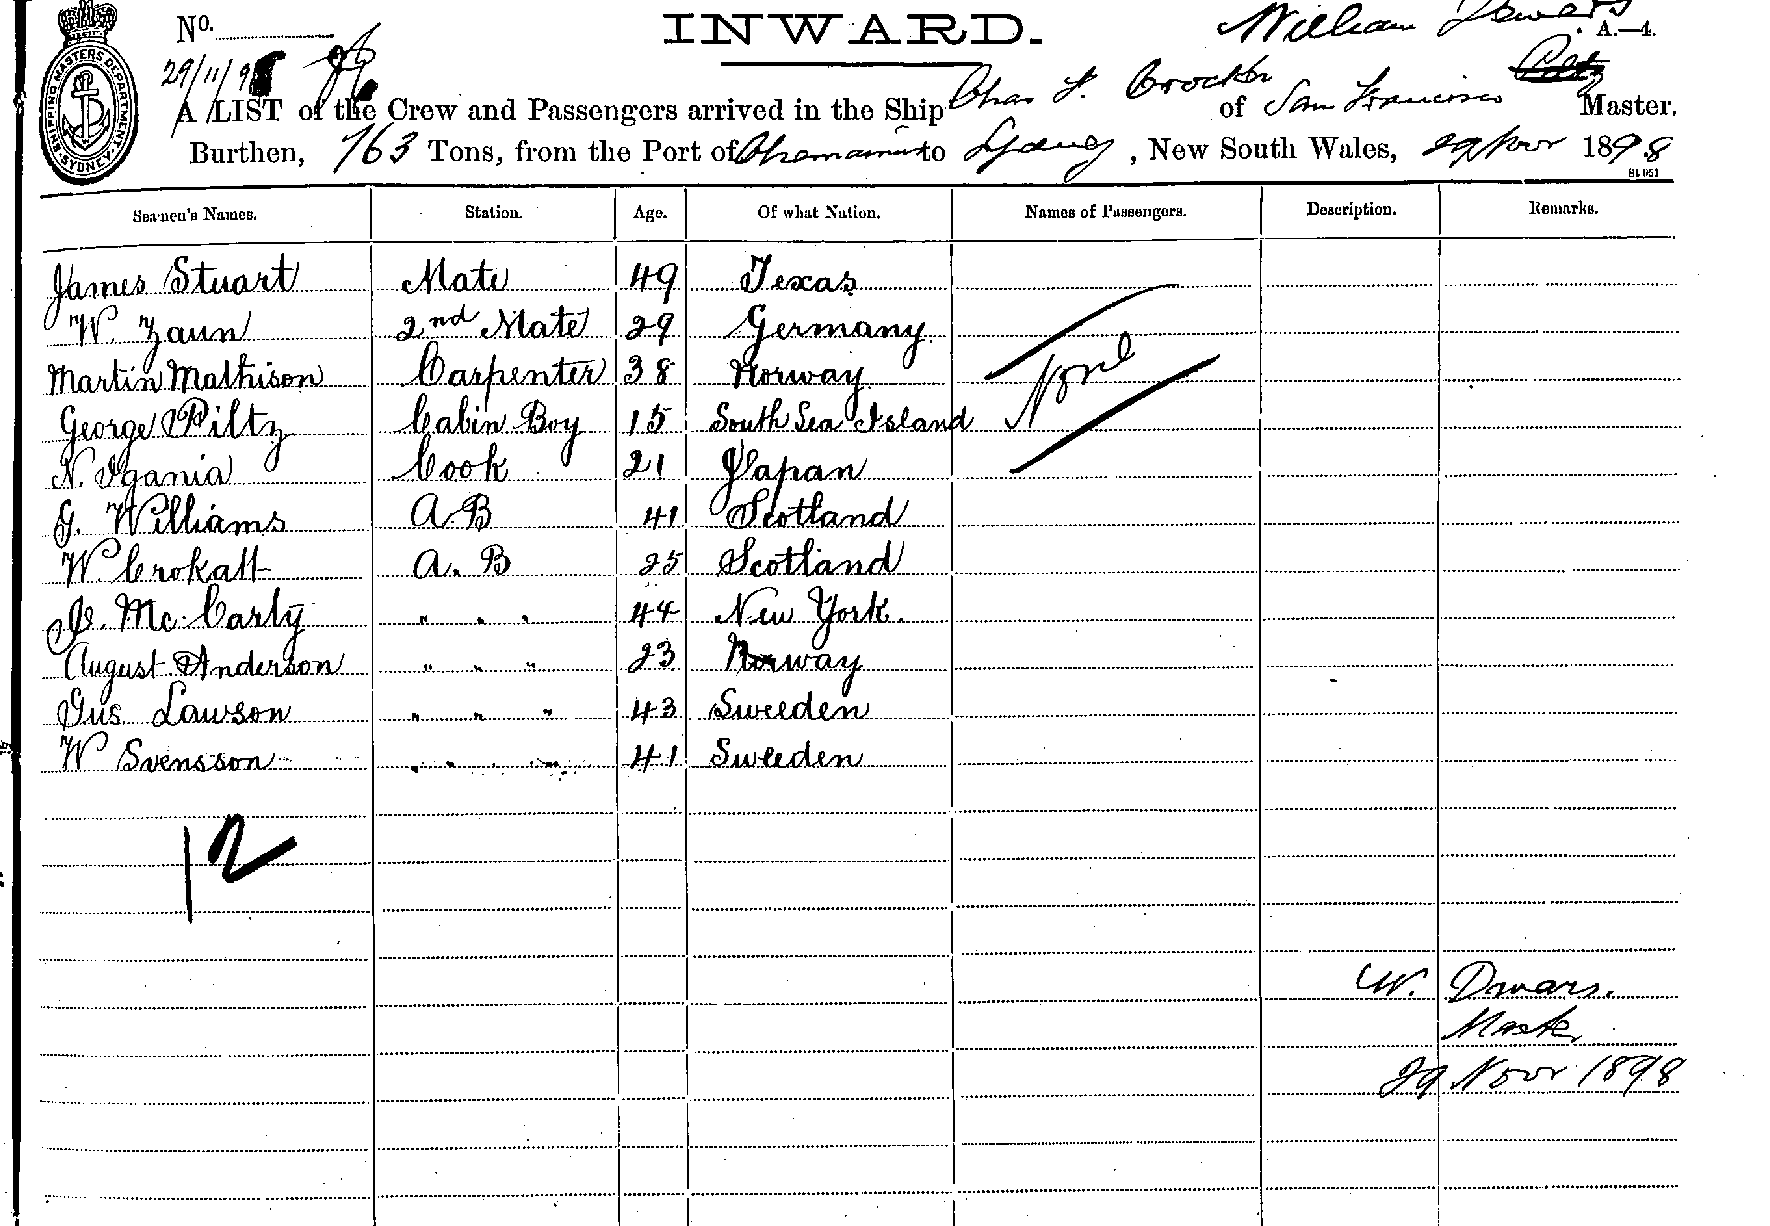 No.
INWARD.
William Dwars
A.—4.
29/11/98
SHIPPING MASTERS DEPARTMENT. SYDNEY.
A LIST of the Crew and Passengers arrived in the Ship Chas F. Crocker of San Francisco Master.
Burthen, 763 Tons, from the Port of to Sydney, New South Wales, 29 Novr 1898
Seamen's Names. Station. Age. Of what Nation. Names of Passengers. Description. Remarks.
James Stuart Mate 49 Texas
W. Zaun 2nd Mate 29 Germany
Martin Mathison Carpenter 38 Norway
None
George Piltz Cabin Boy 15 South Sea Island
N. Igania Cook 21 Japan
G. Williams A.B 41 Scotland
W Crokatt A. B 25 Scotland
J. Mc. Carty " " " 44 New York.
August Anderson " " " 23 Norway
Gus Lawson " " " 43 Sweeden
W Svensson " " " 41 Sweeden
12
W. Dwars.
Master
29 Novr 1898